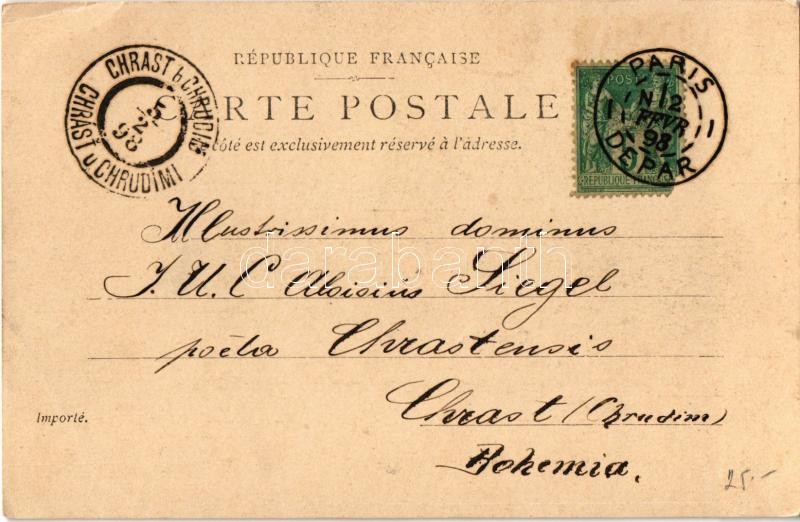 RÉPUBLIQUE FRANÇAISE
CARTE POSTALE
côté est exclusivement réservé à l'adresse.
CHRAST b CHRUDIM
CHRAST u CHRUDIMI
98
PARIS
12
FEVR
98
DEPART
POST
REPUBLIQUE FRANÇAISE
Illustrissimus dominus
J. U. C Aloisius Siegel
poëta Chrastensis
Chrast (Chrudim)
Bohemia.
Importé.
25.-
darabanth